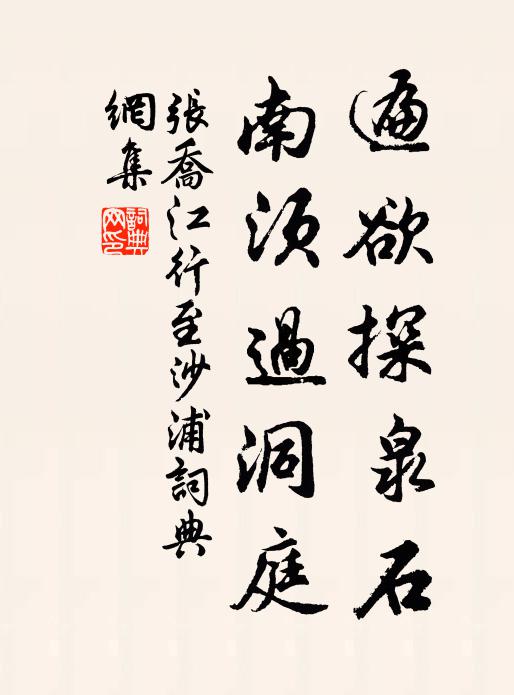 遍欲探泉石
南須過洞庭
張喬江行至沙浦詞典
網集
詞典
网印